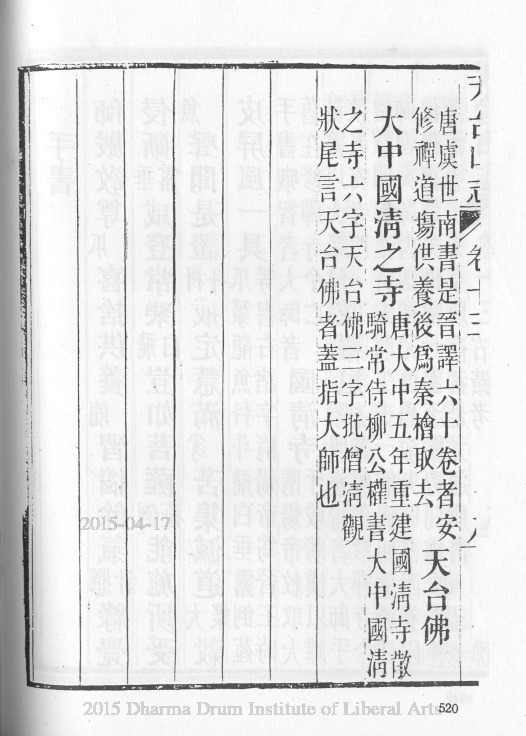 天台山志 卷十三
唐虞世南書是晉譯六十卷者安
修禪道塲供養後爲秦檜取去
天台佛
大中國淸之寺
唐大中五年重建國淸寺散
騎常侍柳公權書大中國淸
之寺六字天台佛三字批僧淸觀
狀尾言天台佛者蓋指大師也
2015-04-17
2015 Dharma Drum Institute of Liberal Arts
520